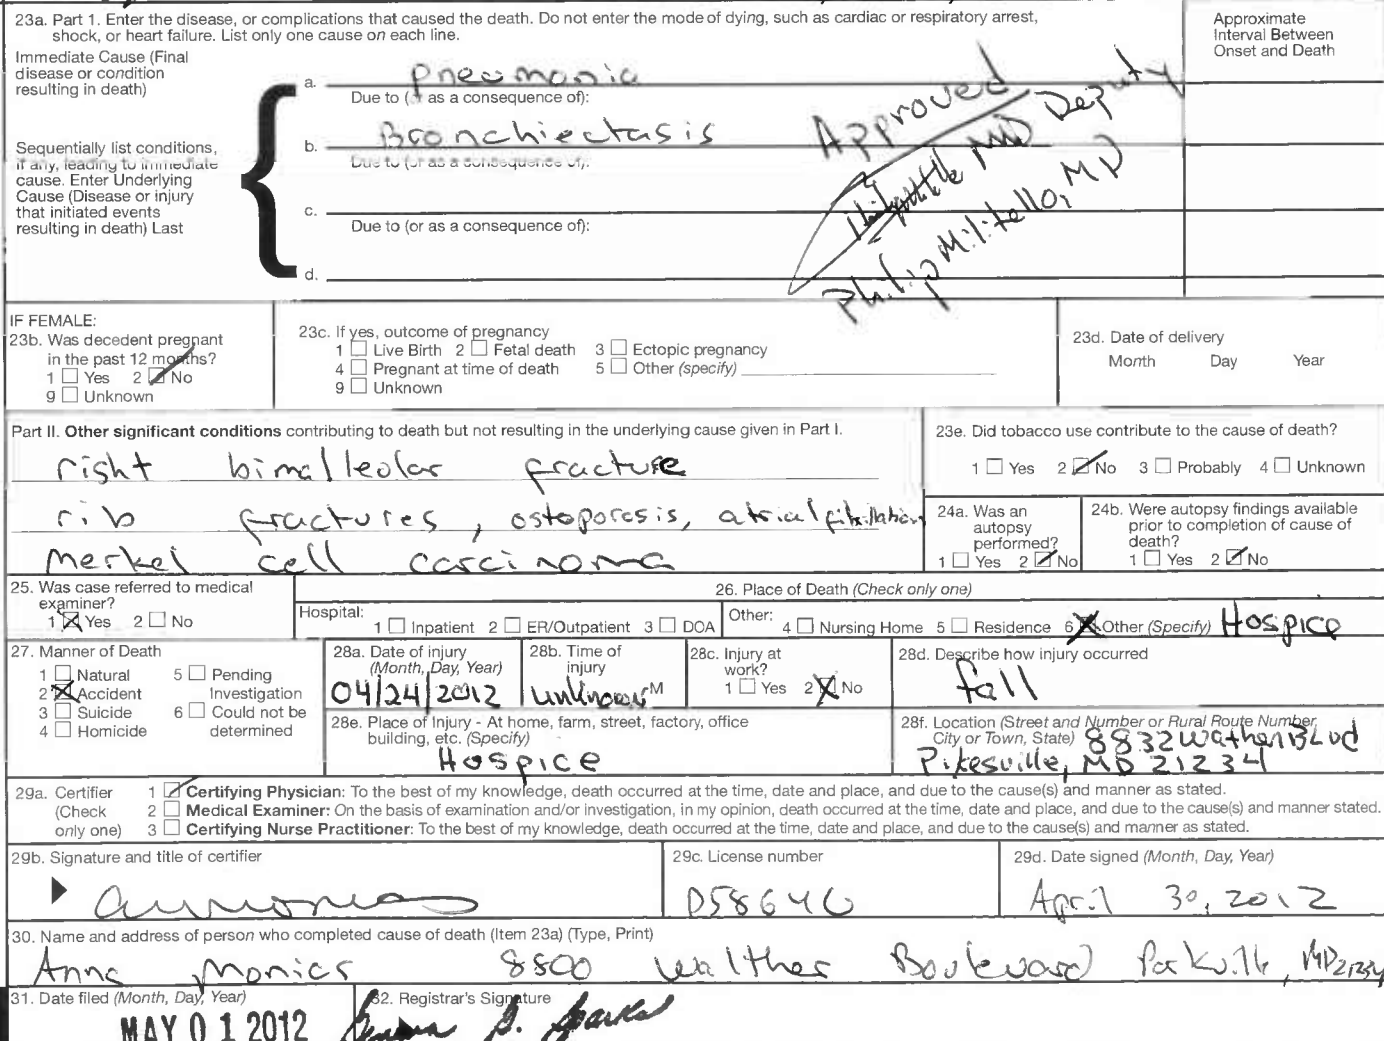 23a. Part 1. Enter the disease, or complications that caused the death. Do not enter the mode of dying, such as cardiac or respiratory arrest,
shock, or heart failure. List only one cause on each line.
Approximate
Interval Between
Onset and Death
Immediate Cause (Final
disease or condition
resulting in death)
a. pneumonia
Due to (or as a consequence of):
Sequentially list conditions,
if any, leading to immediate
cause. Enter Underlying
Cause (Disease or injury
that initiated events
resulting in death) Last
b. Bronchiectasis
Due to (or as a consequence of):
c.
Due to (or as a consequence of):
d.
Approved
MD Deputy
Philip Militello, MD
IF FEMALE:
23b. Was decedent pregnant
in the past 12 months?
1 Yes 2 No
9 Unknown
23c. If yes, outcome of pregnancy
1 Live Birth 2 Fetal death 3 Ectopic pregnancy
4 Pregnant at time of death 5 Other (specify)
9 Unknown
23d. Date of delivery
Month Day Year
Part II. Other significant conditions contributing to death but not resulting in the underlying cause given in Part I.
right bimalleolar fracture
rib fractures, ostoporosis, atrial fibrillation
merkel cell carcinoma
23e. Did tobacco use contribute to the cause of death?
1 Yes 2 No 3 Probably 4 Unknown
24a. Was an
autopsy
performed?
1 Yes 2 No
24b. Were autopsy findings available
prior to completion of cause of
death?
1 Yes 2 No
25. Was case referred to medical
examiner?
1 Yes 2 No
26. Place of Death (Check only one)
Hospital: 1 Inpatient 2 ER/Outpatient 3 DOA
Other: 4 Nursing Home 5 Residence 6 Other (Specify) Hospice
27. Manner of Death
1 Natural 5 Pending
2 Accident Investigation
3 Suicide 6 Could not be
4 Homicide determined
28a. Date of injury
(Month, Day, Year)
04/24/2012
28b. Time of
injury
unknown M
28c. Injury at
work?
1 Yes 2 No
28d. Describe how injury occurred
fall
28e. Place of Injury - At home, farm, street, factory, office
building, etc. (Specify)
Hospice
28f. Location (Street and Number or Rural Route Number,
City or Town, State) 8832 Wather BLvd
Pikesville, MD 21234
29a. Certifier
(Check
only one)
1 Certifying Physician: To the best of my knowledge, death occurred at the time, date and place, and due to the cause(s) and manner as stated.
2 Medical Examiner: On the basis of examination and/or investigation, in my opinion, death occurred at the time, date and place, and due to the cause(s) and manner stated.
3 Certifying Nurse Practitioner: To the best of my knowledge, death occurred at the time, date and place, and due to the cause(s) and manner as stated.
29b. Signature and title of certifier
29c. License number
D58646
29d. Date signed (Month, Day, Year)
April 30, 2012
30. Name and address of person who completed cause of death (Item 23a) (Type, Print)
Anna Monias 8800 Walther Boulevard Parkville, MD 21234
31. Date filed (Month, Day, Year)
MAY 01 2012
32. Registrar's Signature